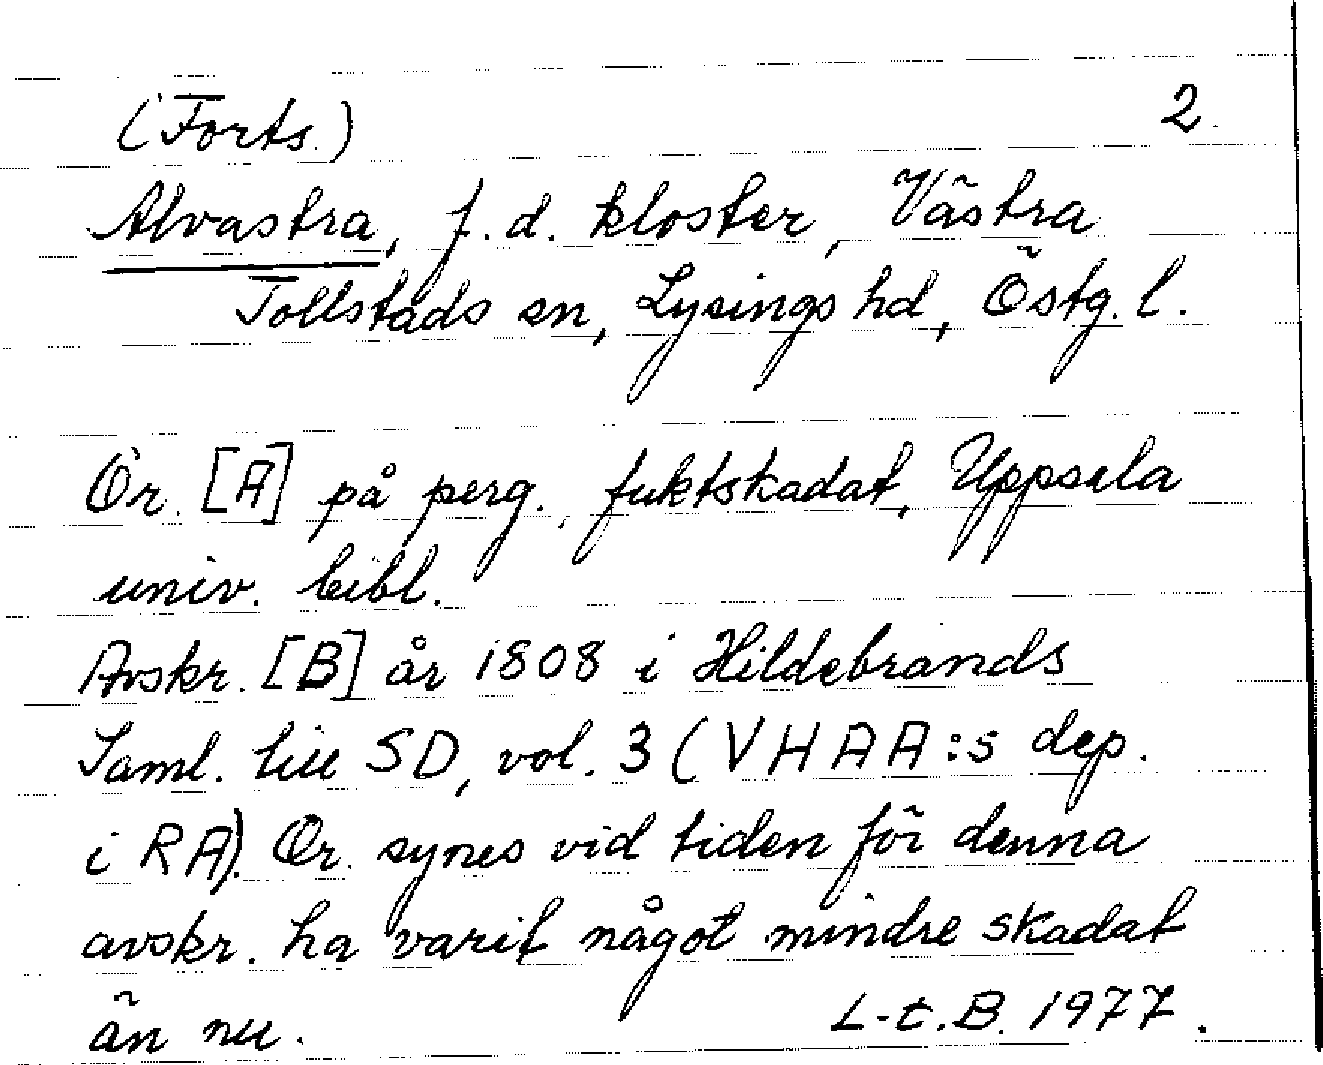 (Forts.) 2
Alvastra, f.d. kloster, Västra
Tollstads sn, Lysings hd, Östg. l.
Or. [A] på perg., fuktskadat, Uppsala
univ. bibl.
Avskr. [B] år 1808 i Hildebrands
Saml. till SD, vol. 3 (VHAA:s dep.
i RA). Or. synes vid tiden för denna
avskr. ha varit något mindre skadat
än nu. L-t.B. 1977.